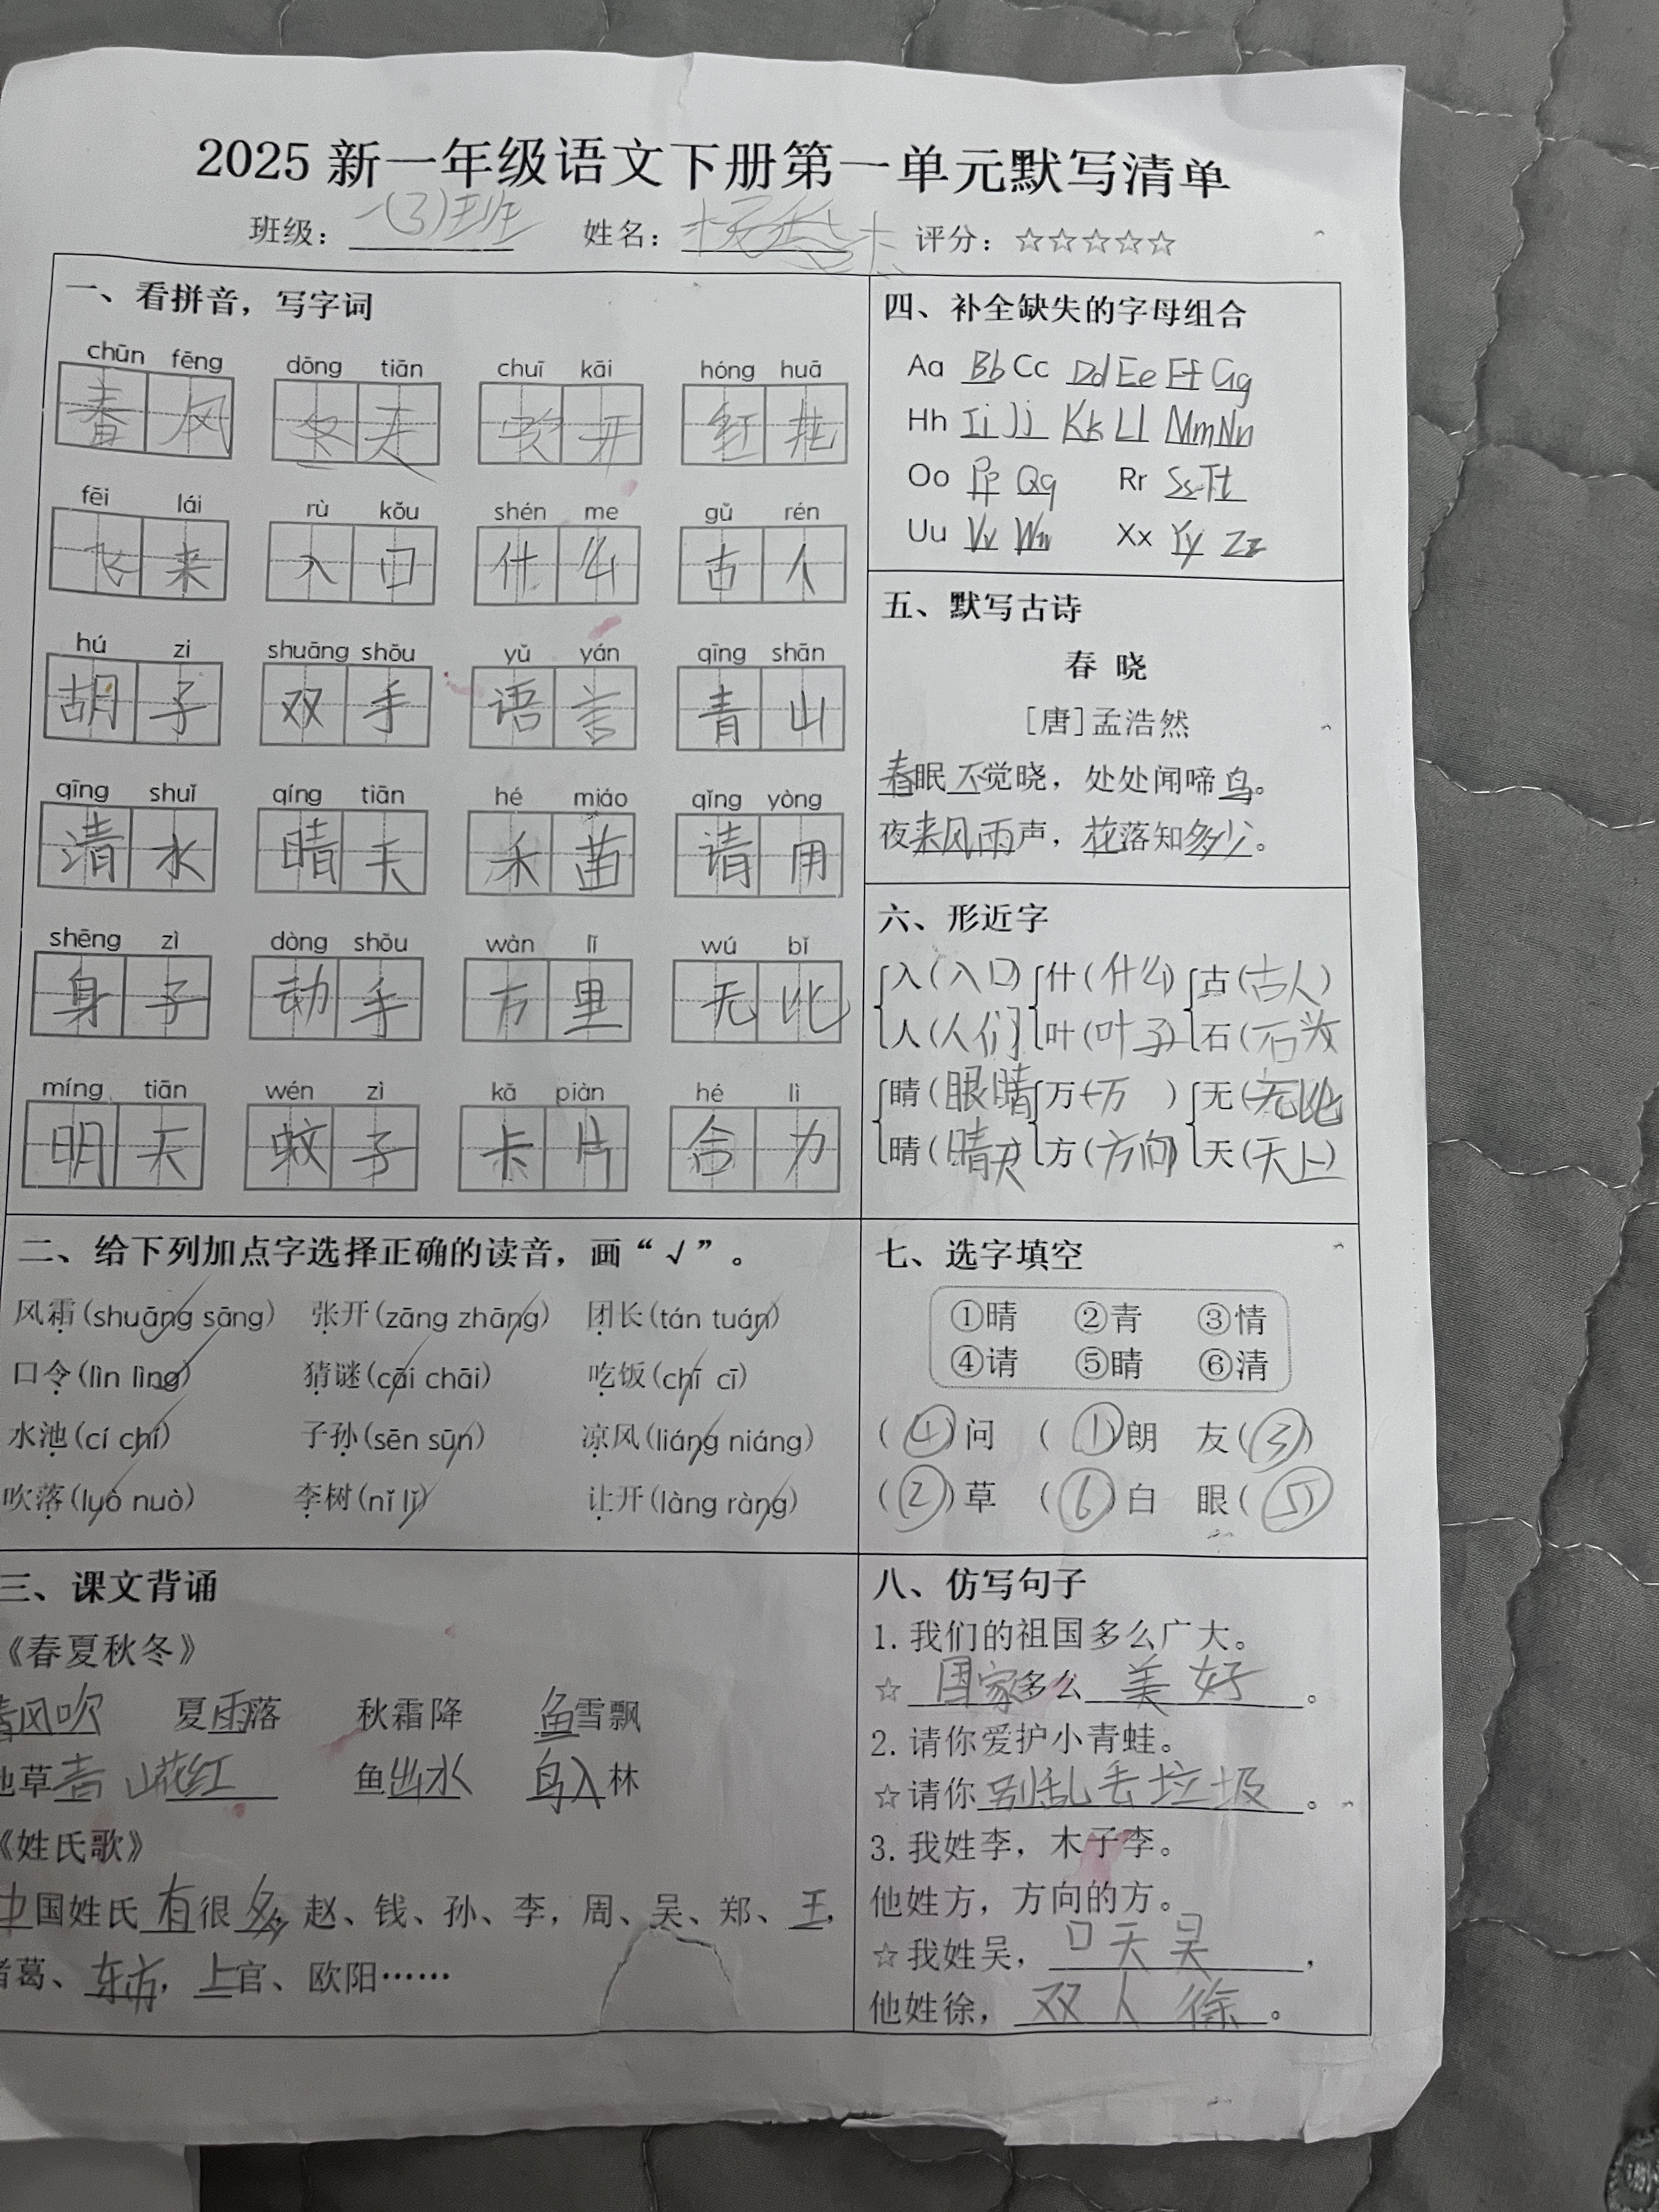 2025 新一年级语文下册第一单元默写清单
班级：一(3)班 姓名： 评分：☆☆☆☆☆
一、看拼音，写字词
chūn fēng dōng tiān chuī kāi hóng huā
春风 冬天 吹开 红花
fēi lái rù kǒu shén me gǔ rén
飞来 入口 什么 古人
hú zi shuāng shǒu yǔ yán qīng shān
胡子 双手 语言 青山
qīng shuǐ qíng tiān hé miáo qǐng yòng
清水 晴天 禾苗 请用
shēng zì dòng shǒu wàn lǐ wú bǐ
身子 动手 万里 无比
míng tiān wén zì kǎ piàn hé lì
明天 蚊子 卡片 合力
二、给下列加点字选择正确的读音，画“√”。
风霜(shuāng sāng) 张开(zāng zhāng) 团长(tán tuán)
口令(lìn lìng) 猜谜(cāi chāi) 吃饭(chī cī)
水池(cí chí) 子孙(sēn sūn) 凉风(liáng niáng)
吹落(luò nuò) 李树(nǐ lǐ) 让开(làng ràng)
三、课文背诵
《春夏秋冬》
春风吹 夏雨落 秋霜降 鱼雪飘
池草青 山花红 鱼出水 鸟入林
《姓氏歌》
中国姓氏有很多，赵、钱、孙、李，周、吴、郑、王，
诸葛、东方，上官、欧阳……
四、补全缺失的字母组合
Aa Bb Cc Dd Ee Ff Gg
Hh Ii Jj Kk Ll Mm Nn
Oo Pp Qq Rr Ss Tt
Uu Vv Ww Xx Yy Zz
五、默写古诗
春 晓
[唐]孟浩然
春眠不觉晓，处处闻啼鸟。
夜来风雨声，花落知多少。
六、形近字
入(入口) 什(什么) 古(古人)
人(人们) 叶(叶子) 石(石头)
睛(眼睛) 万(万 ) 无(无比)
晴(晴天) 方(方向) 天(天上)
七、选字填空
①晴 ②青 ③情
④请 ⑤睛 ⑥清
(④)问 (①)朗 友(③)
(②)草 (⑥)白 眼(⑤)
八、仿写句子
1. 我们的祖国多么广大。
☆国家多么美好。
2. 请你爱护小青蛙。
☆请你别乱丢垃圾。
3. 我姓李，木子李。
他姓方，方向的方。
☆我姓吴，口天吴，
他姓徐，双人徐。